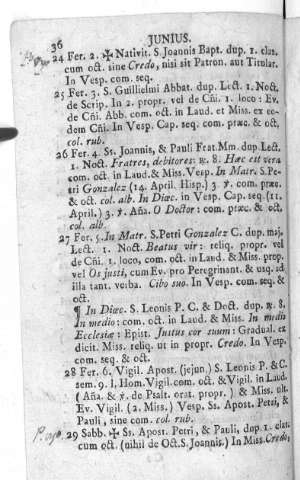 36 JUNIUS.
24 Fer. 2. ✠ Nativit. S. Joannis Bapt. dup. 1. clas.
cum oct. sine Credo, nisi sit Patron. aut Titular.
In Vesp. com. seq.
25 Fer. 3. S. Guillielmi Abbat. dup. Lect. 1. Noct.
de Scrip. In 2. propr. vel de Cñi. 1. loco: Ev.
de Cñi. Abb. com. oct. in Laud. et Miss. ex eo-
dem Cñi. In Vesp. Cap. seq. com. præc. & oct.
col. rub.
26 Fer. 4. Ss. Joannis, & Pauli Frat. Mm. dup. Lect.
1. Noct. Fratres, debitores: ℟. 8. Hæc est vera
com. oct. in Laud. & Miss. Vesp. In Matr. S. Pe-
tri Gonzalez (14. April. Hisp.) 3. ℣. com. præc.
& oct. col. alb. In Diœc. in Vesp. Cap. seq. (11.
April.) 3. ℣. Aña. O Doctor: com. præc. & oct.
col. alb.
27 Fer. 5. In Matr. S. Petri Gonzalez C. dup. maj.
Lect. 1. Noct. Beatus vir: reliq. propr. vel
de Cñi. 1. loco, com. oct. in Laud. & Miss. prop.
vel Os justi, cum Ev. pro Peregrinant. & usq. ad
illa tant. verba. Cibo suo. In Vesp. com. seq. &
oct.
¶ In Diœc. S. Leonis P. C. & Doct. dup. ℟. 8.
In medio: com. oct. in Laud. & Miss. In medio
Ecclesiæ: Epist. Justus cor suum: Gradual. ex
dicit. Miss. reliq. ut in propr. Credo. In Vesp.
com. seq. & oct.
28 Fer. 6. Vigil. Apost. (jejun.) S. Leonis P. & C.
sem. 9. l. Hom. Vigil. com. oct. & Vigil. in Laud.
( Aña. & ℣. de Psalt. orat. propr. ) & Miss. ult.
Ev. Vigil. (2. Miss.) Vesp. Ss. Apost. Petri, &
Pauli, sine com. col. rub.
29 Sabb. ✠ Ss. Apost. Petri, & Pauli, dup. 1. clas.
cum oct. (nihil de Oct. S. Joannis.) In Miss. Credo,